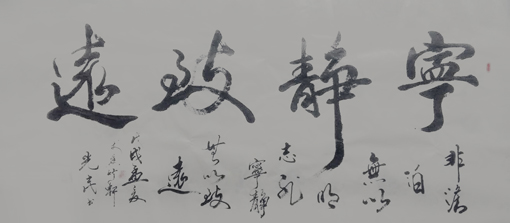 寧靜致遠
非澹
泊
無以
明
志非
寧靜
無以致
遠
戊戌夏
書